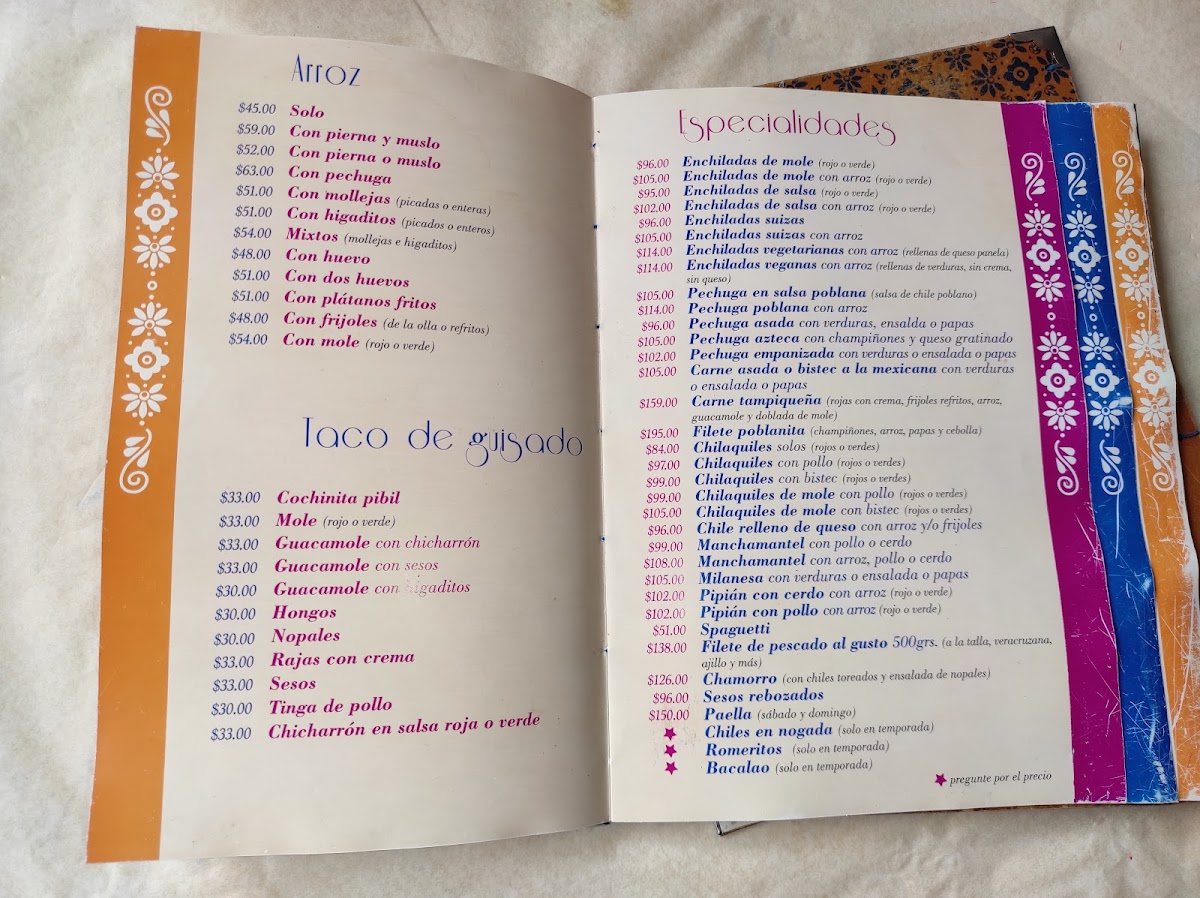 Arroz
$45.00 Solo
$59.00 Con pierna y muslo
$52.00 Con pierna o muslo
$63.00 Con pechuga
$51.00 Con mollejas (picadas o enteras)
$51.00 Con higaditos (picados o enteros)
$54.00 Mixtos (mollejas e higaditos)
$48.00 Con huevo
$51.00 Con dos huevos
$51.00 Con plátanos fritos
$48.00 Con frijoles (de la olla o refritos)
$54.00 Con mole (rojo o verde)
Taco de guisado
$33.00 Cochinita pibil
$33.00 Mole (rojo o verde)
$33.00 Guacamole con chicharrón
$33.00 Guacamole con sesos
$30.00 Guacamole con higaditos
$30.00 Hongos
$30.00 Nopales
$33.00 Rajas con crema
$33.00 Sesos
$30.00 Tinga de pollo
$33.00 Chicharrón en salsa roja o verde
Especialidades
$96.00 Enchiladas de mole (rojo o verde)
$105.00 Enchiladas de mole con arroz (rojo o verde)
$95.00 Enchiladas de salsa (rojo o verde)
$102.00 Enchiladas de salsa con arroz (rojo o verde)
$96.00 Enchiladas suizas
$105.00 Enchiladas suizas con arroz
$114.00 Enchiladas vegetarianas con arroz (rellenas de queso panela)
$114.00 Enchiladas veganas con arroz (rellenas de verduras, sin crema,
sin queso)
$105.00 Pechuga en salsa poblana (salsa de chile poblano)
$114.00 Pechuga poblana con arroz
$96.00 Pechuga asada con verduras, ensalda o papas
$105.00 Pechuga azteca con champiñones y queso gratinado
$102.00 Pechuga empanizada con verduras o ensalada o papas
$105.00 Carne asada o bistec a la mexicana con verduras
o ensalada o papas
$159.00 Carne tampiqueña (rojas con crema, frijoles refritos, arroz,
guacamole y doblada de mole)
$195.00 Filete poblanita (champiñones, arroz, papas y cebolla)
$84.00 Chilaquiles solos (rojos o verdes)
$97.00 Chilaquiles con pollo (rojos o verdes)
$99.00 Chilaquiles con bistec (rojos o verdes)
$99.00 Chilaquiles de mole con pollo (rojos o verdes)
$105.00 Chilaquiles de mole con bistec (rojos o verdes)
$96.00 Chile relleno de queso con arroz y/o frijoles
$99.00 Manchamantel con pollo o cerdo
$108.00 Manchamantel con arroz, pollo o cerdo
$105.00 Milanesa con verduras o ensalada o papas
$102.00 Pipián con cerdo con arroz (rojo o verde)
$102.00 Pipián con pollo con arroz (rojo o verde)
$51.00 Spaguetti
$138.00 Filete de pescado al gusto 500grs. (a la talla, veracruzana,
ajillo y más)
$126.00 Chamorro (con chiles toreados y ensalada de nopales)
$96.00 Sesos rebozados
$150.00 Paella (sábado y domingo)
★ Chiles en nogada (solo en temporada)
★ Romeritos (solo en temporada)
★ Bacalao (solo en temporada)
★ pregunte por el precio